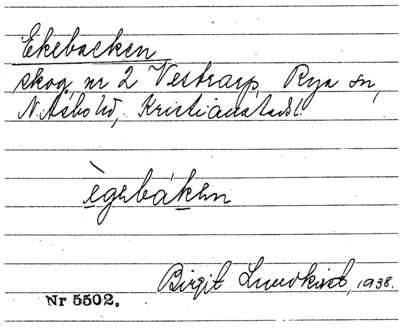 Ekebacken
skog nr 2 Vestrarp, Rya sn,
N. Åsbo hd, Kristianstads l.
ègebáken
Birgit Lundkvist, 1938.
Nr 5502.